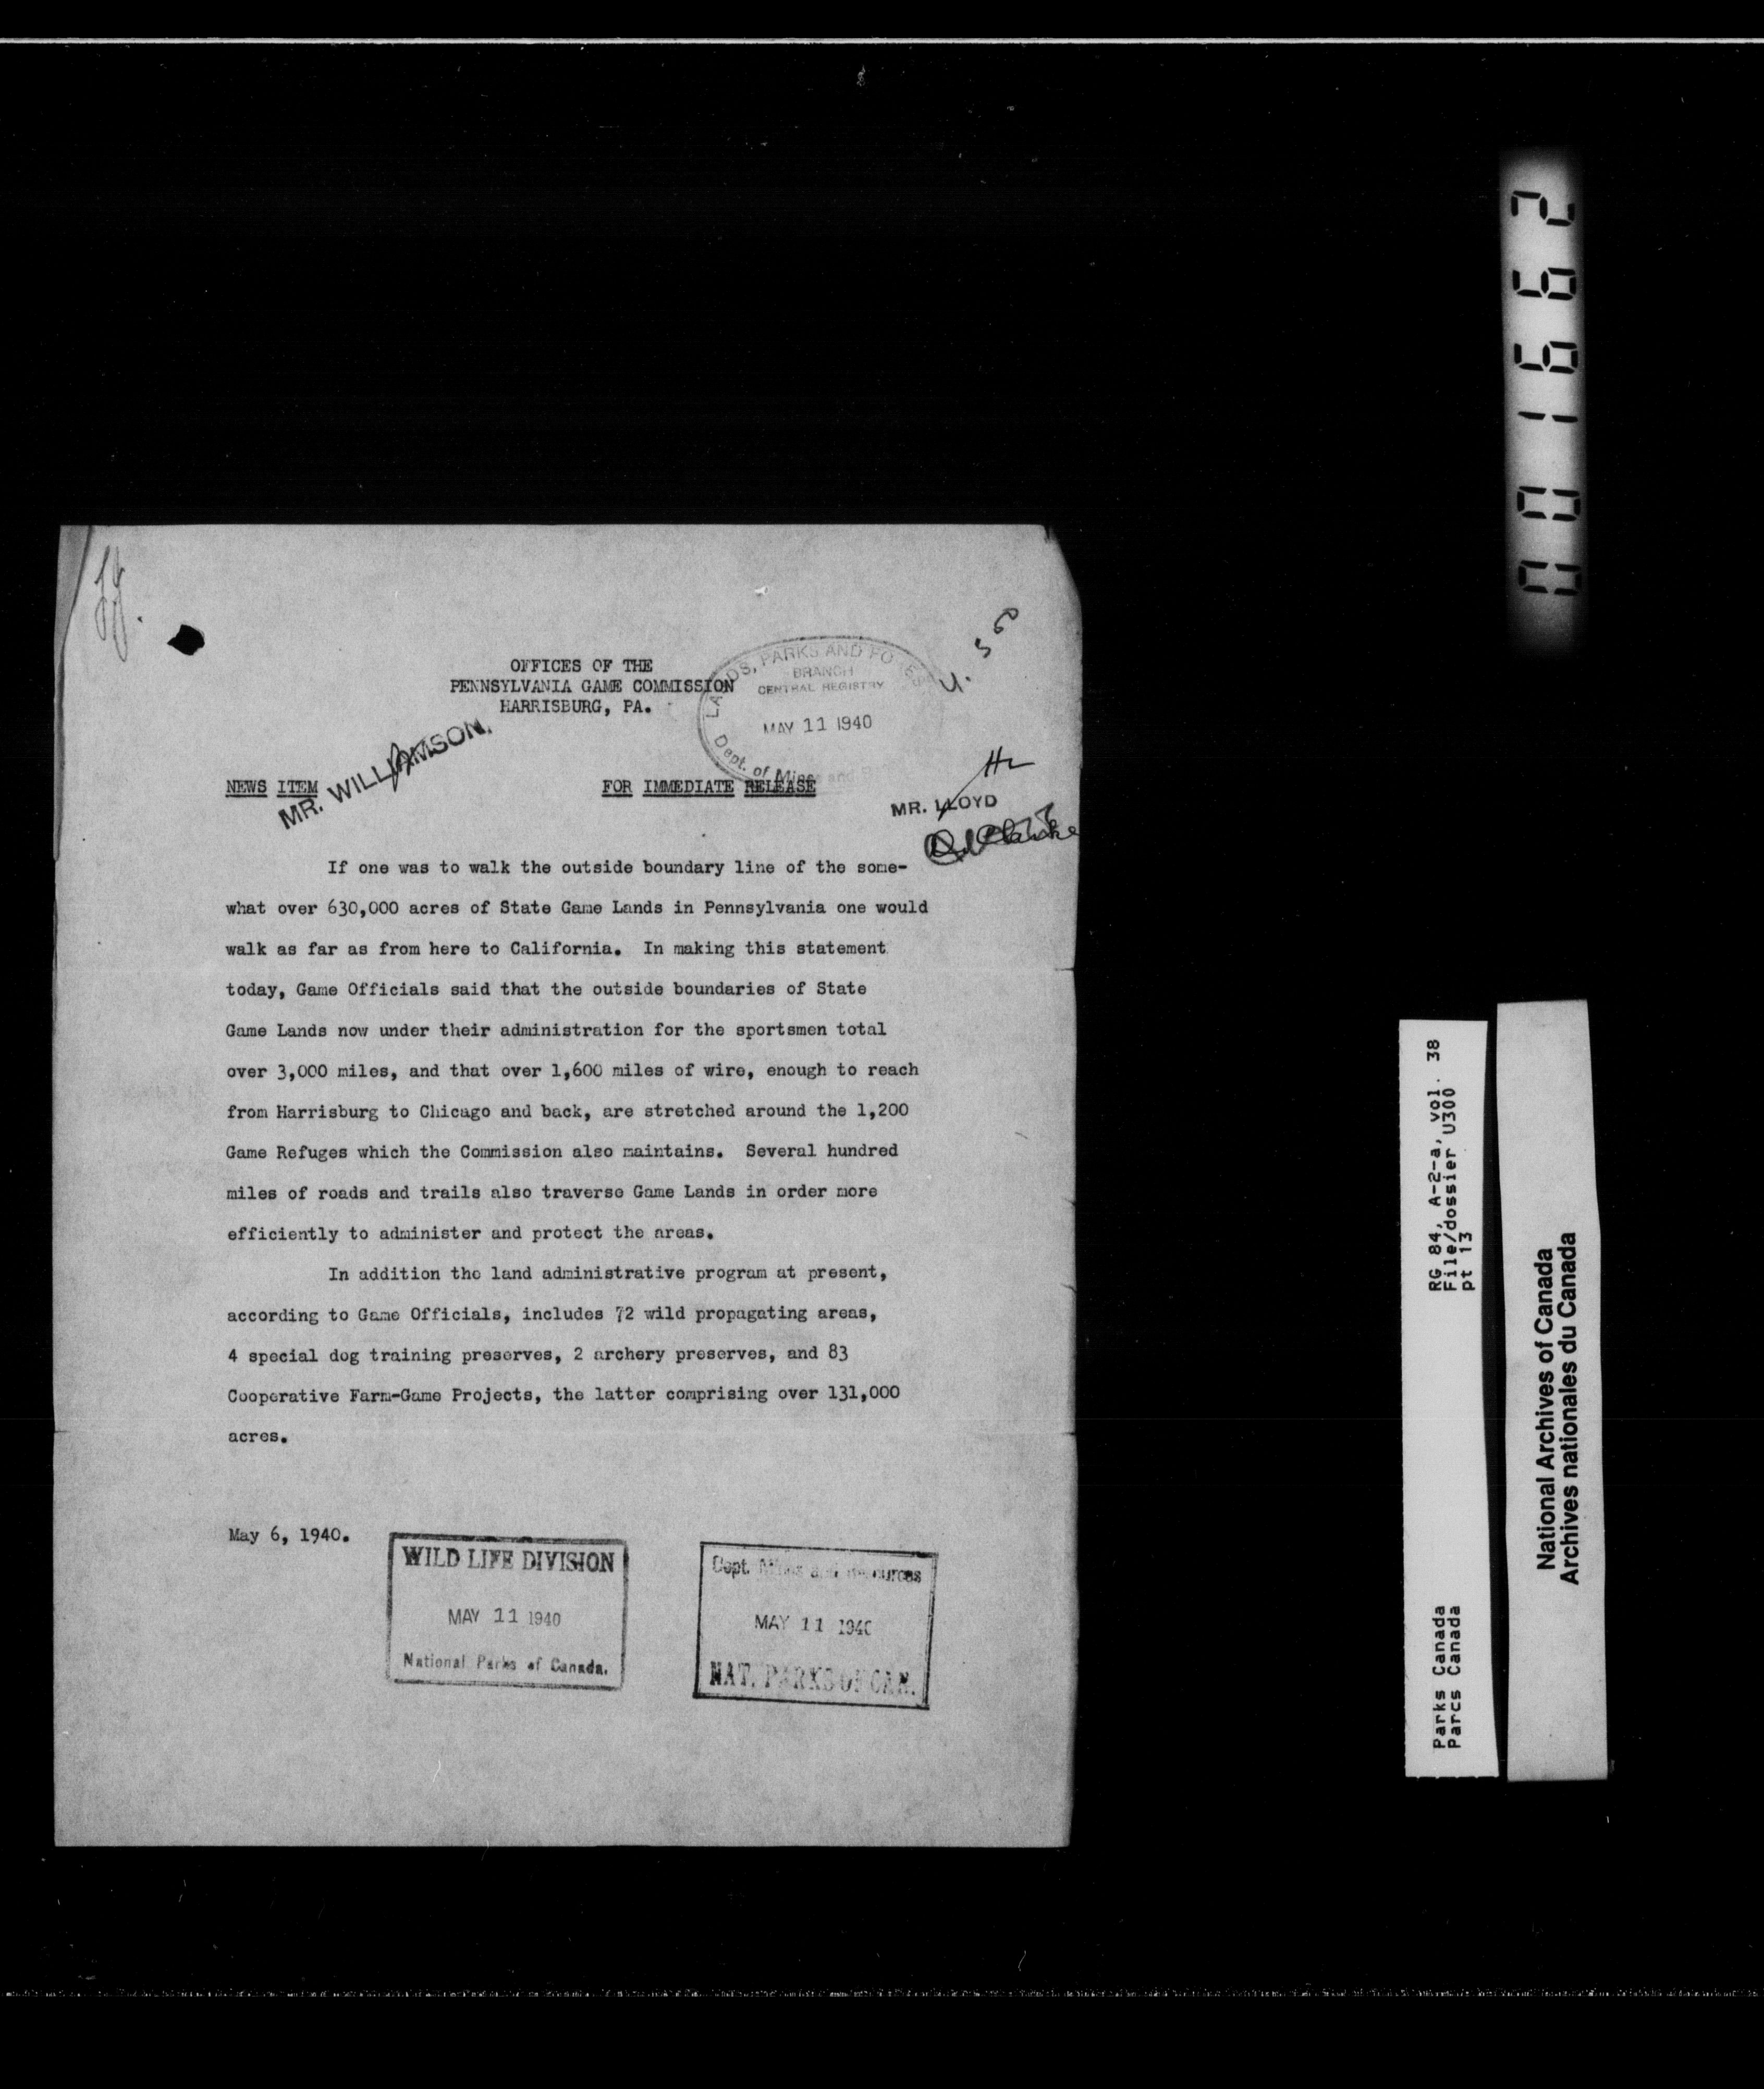 OFFICES OF THE
PENNSYLVANIA GAME COMMISSION
HARRISBURG, PA.
LANDS, PARKS AND
BRANCH
CENTRAL REGISTRY
MAY 11 1940
Dept. of Mines and
MR. WILLIAMSON.
NEWS ITEM
FOR IMMEDIATE RELEASE
MR. LLOYD
If one was to walk the outside boundary line of the some-
what over 630,000 acres of State Game Lands in Pennsylvania one would
walk as far as from here to California. In making this statement
today, Game Officials said that the outside boundaries of State
Game Lands now under their administration for the sportsmen total
over 3,000 miles, and that over 1,600 miles of wire, enough to reach
from Harrisburg to Chicago and back, are stretched around the 1,200
Game Refuges which the Commission also maintains. Several hundred
miles of roads and trails also traverse Game Lands in order more
efficiently to administer and protect the areas.
In addition the land administrative program at present,
according to Game Officials, includes 72 wild propagating areas,
4 special dog training preserves, 2 archery preserves, and 83
Cooperative Farm-Game Projects, the latter comprising over 131,000
acres.
May 6, 1940.
WILD LIFE DIVISION
MAY 11 1940
National Parks of Canada.
Dept. Mines and Resources
MAY 11 1940
NAT. PARKS OF CAN.
001662
RG 84, A-2-a, vol. 38
File/dossier U300
pt 13
Parks Canada
Parcs Canada
National Archives of Canada
Archives nationales du Canada